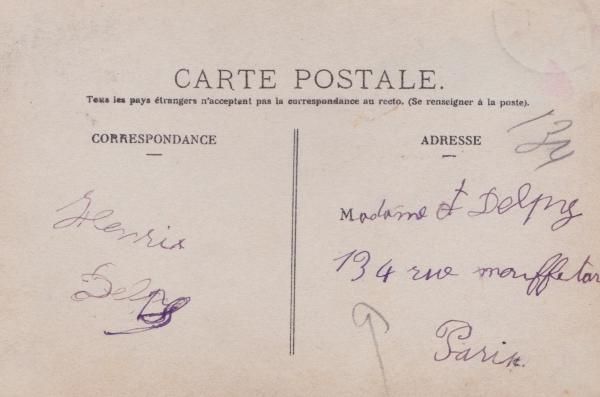 CARTE POSTALE.
Tous les pays étrangers n'acceptent pas la correspondance au recto. (Se renseigner à la poste).
CORRESPONDANCE
ADRESSE
134
Madame & Delpy
134 rue mouffetar
Paris.
Henrix
Delpy
9